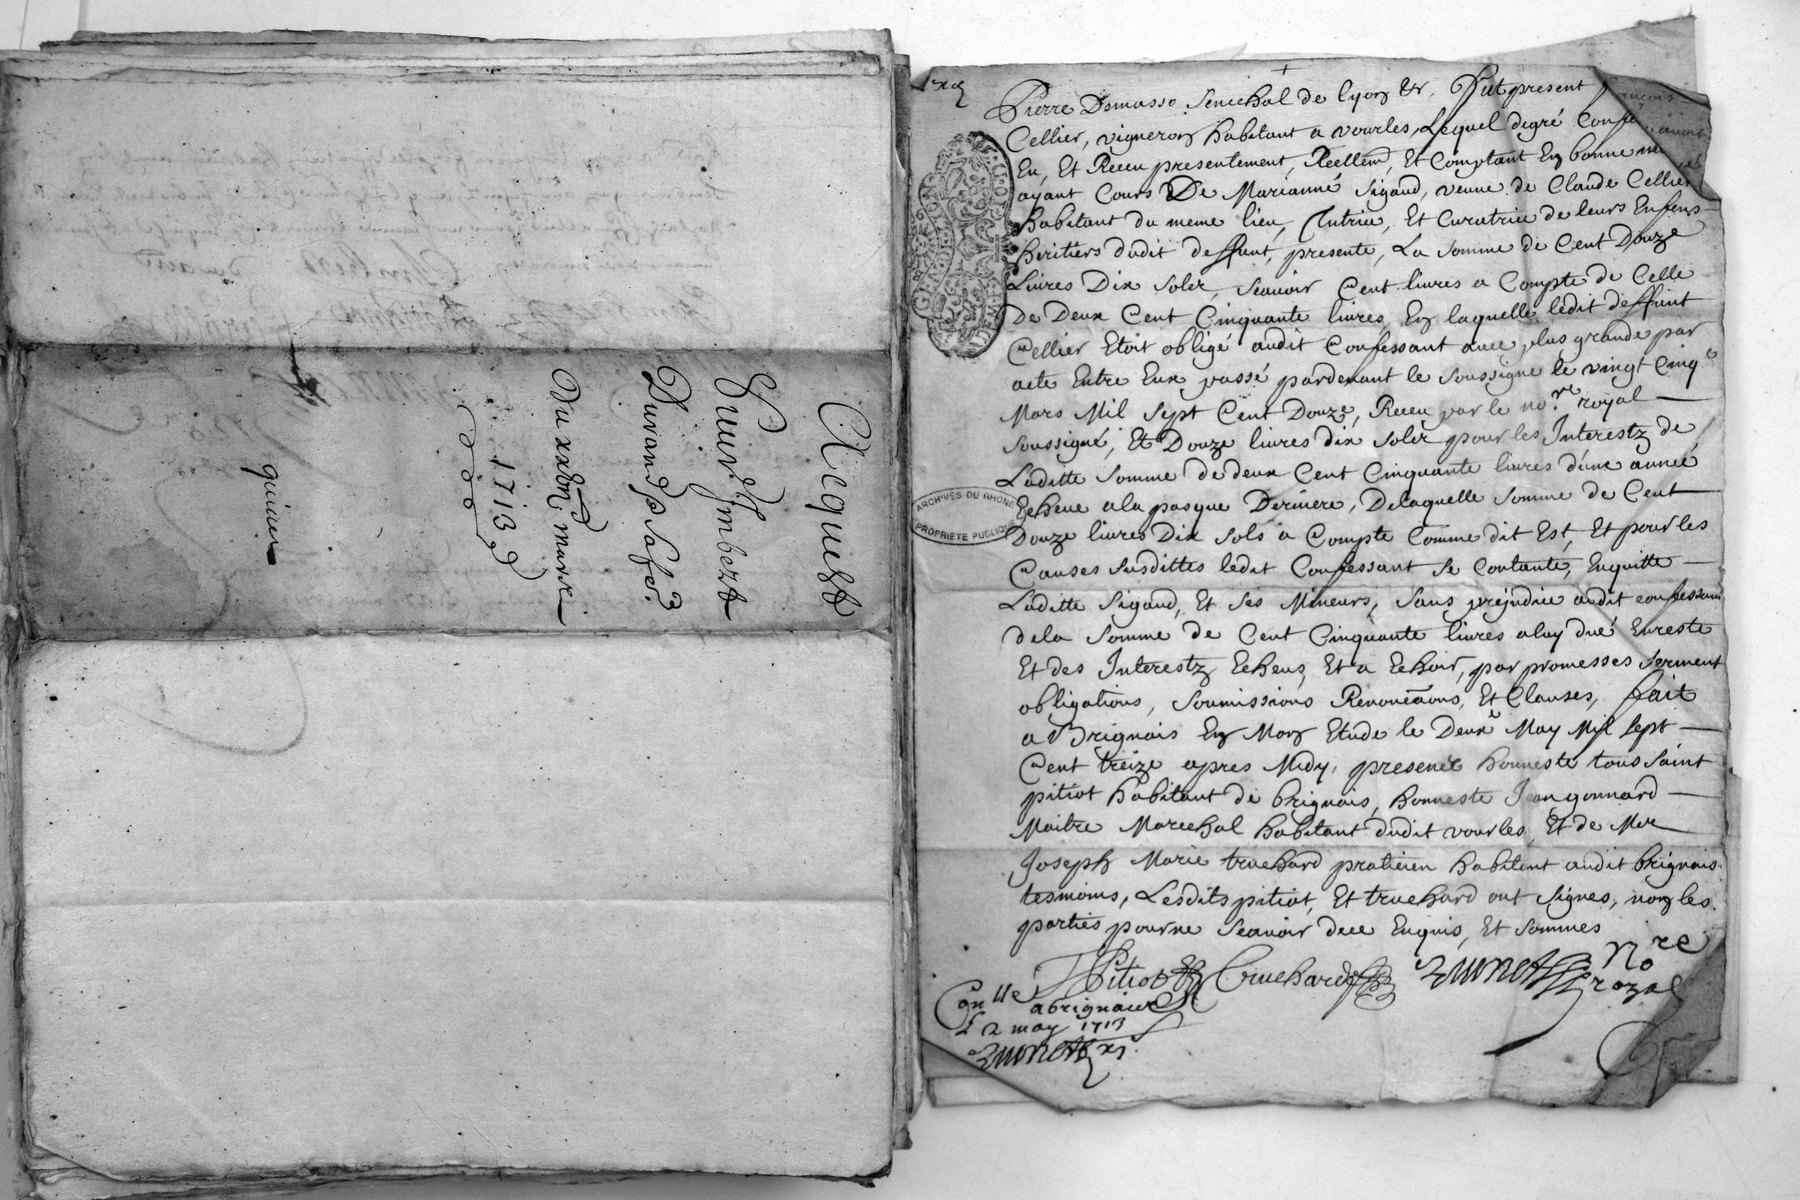 Acquest
Pour Ymbert
Durand & Safer
Du xxbon marse
1713
quinon
Pierre Domasso Senechal de lyon &r, Fut present françois
Cellier, vigneron habitant a vourles, Lequel degré Confe avoir
Eu, Et Receu presentement, Reellemt, Et Comptant En bonne
ayant Cours De Marianne Sigaud, veuve de Claude Cellier
habitant du meme lieu, Tutrice, Et Curatrice de leurs Enfens
heritiers dudit deffunt, presente, La Somme de Cent Douze
Livres Dix Solz, Scavoir Cent livres a Compte de Celle
De Deux Cent Cinquante livres, En laquelle ledit deffunt
Cellier Etoit obligé audit Confessant avec plus grande par
acte Entre Eux passé pardevant le Soussigne le vingt Cinq
Mars Mil Sept Cent Douze, Receu par le no.re royal
Soussigné, Et Douze livres dix Solz pour les Interestz de
Laditte Somme de deux Cent Cinquante livres d'une année
Echeue a la pasque Derniere, De laquelle Somme de Cent
Douze livres Dix Sols a Compte Comme dit Est, Et pour les
Causes Susdittes ledit Confessant Se Contante, Enquitte
Laditte Sigaud, Et Ses Mineurs, Sans prejudice audit confessant
de la Somme de Cent Cinquante livres a luy dué Enreste
Et des Interestz Echeus, Et a Echoir, par promesses Serment
obligations, Soumissions Renonçaons, Et Clauses, fait
a Brignais En Mon Etude le Deuxe May Mil Sept
Cent treize apres Midy, presence honneste toussaint
pitiot habitant de brignais, honneste Jean gonnard
Maitre Marechal habitant dudit vourles, Et de Mre
Joseph Marie truchard praticien habitent audit brignais
tesmoins, Lesdits pitiot, Et truchard ont Signes, non les
parties pour ne Scavoir dece Enquis, Et Sommes
Pitiot Truchard No.re
royal
Conlle a brignais
le 2 may 1713
ARCHIVES DU RHONE
PROPRIETE PUBLIQUE